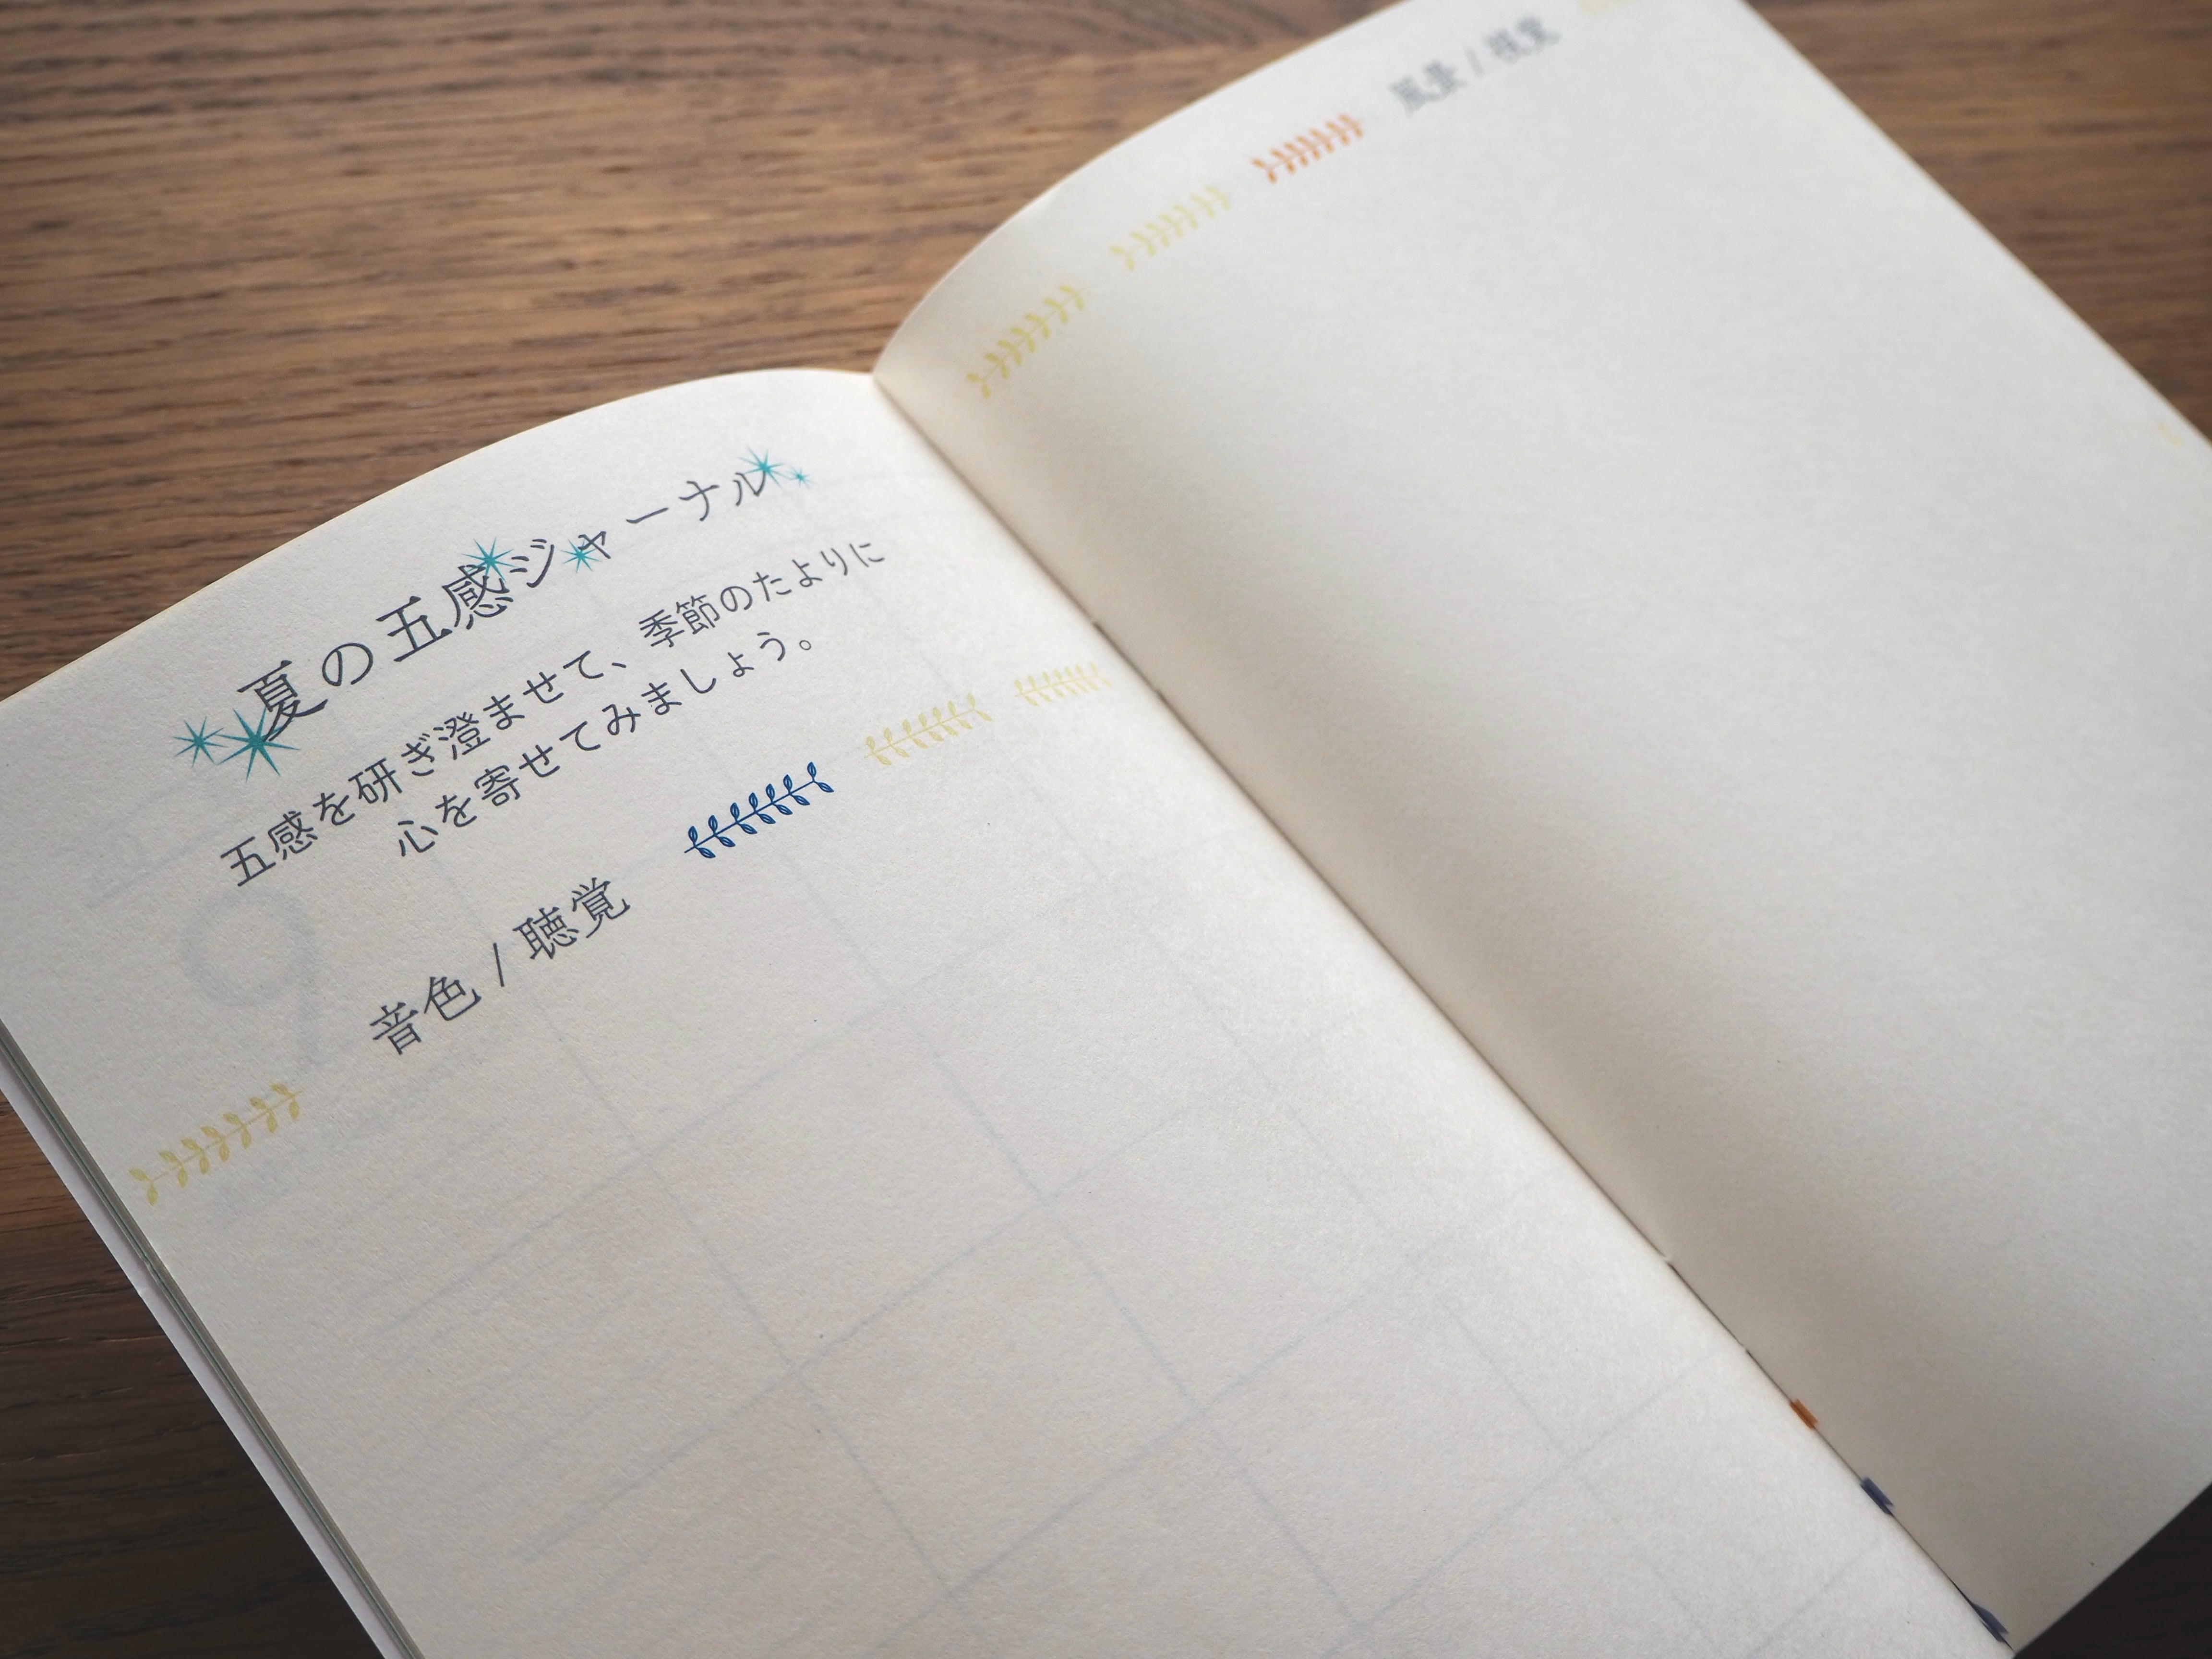 夏の五感ジャーナル
五感を研ぎ澄ませて、季節のたよりに
心を寄せてみましょう。
音色 / 聴覚
風景 / 視覚
9